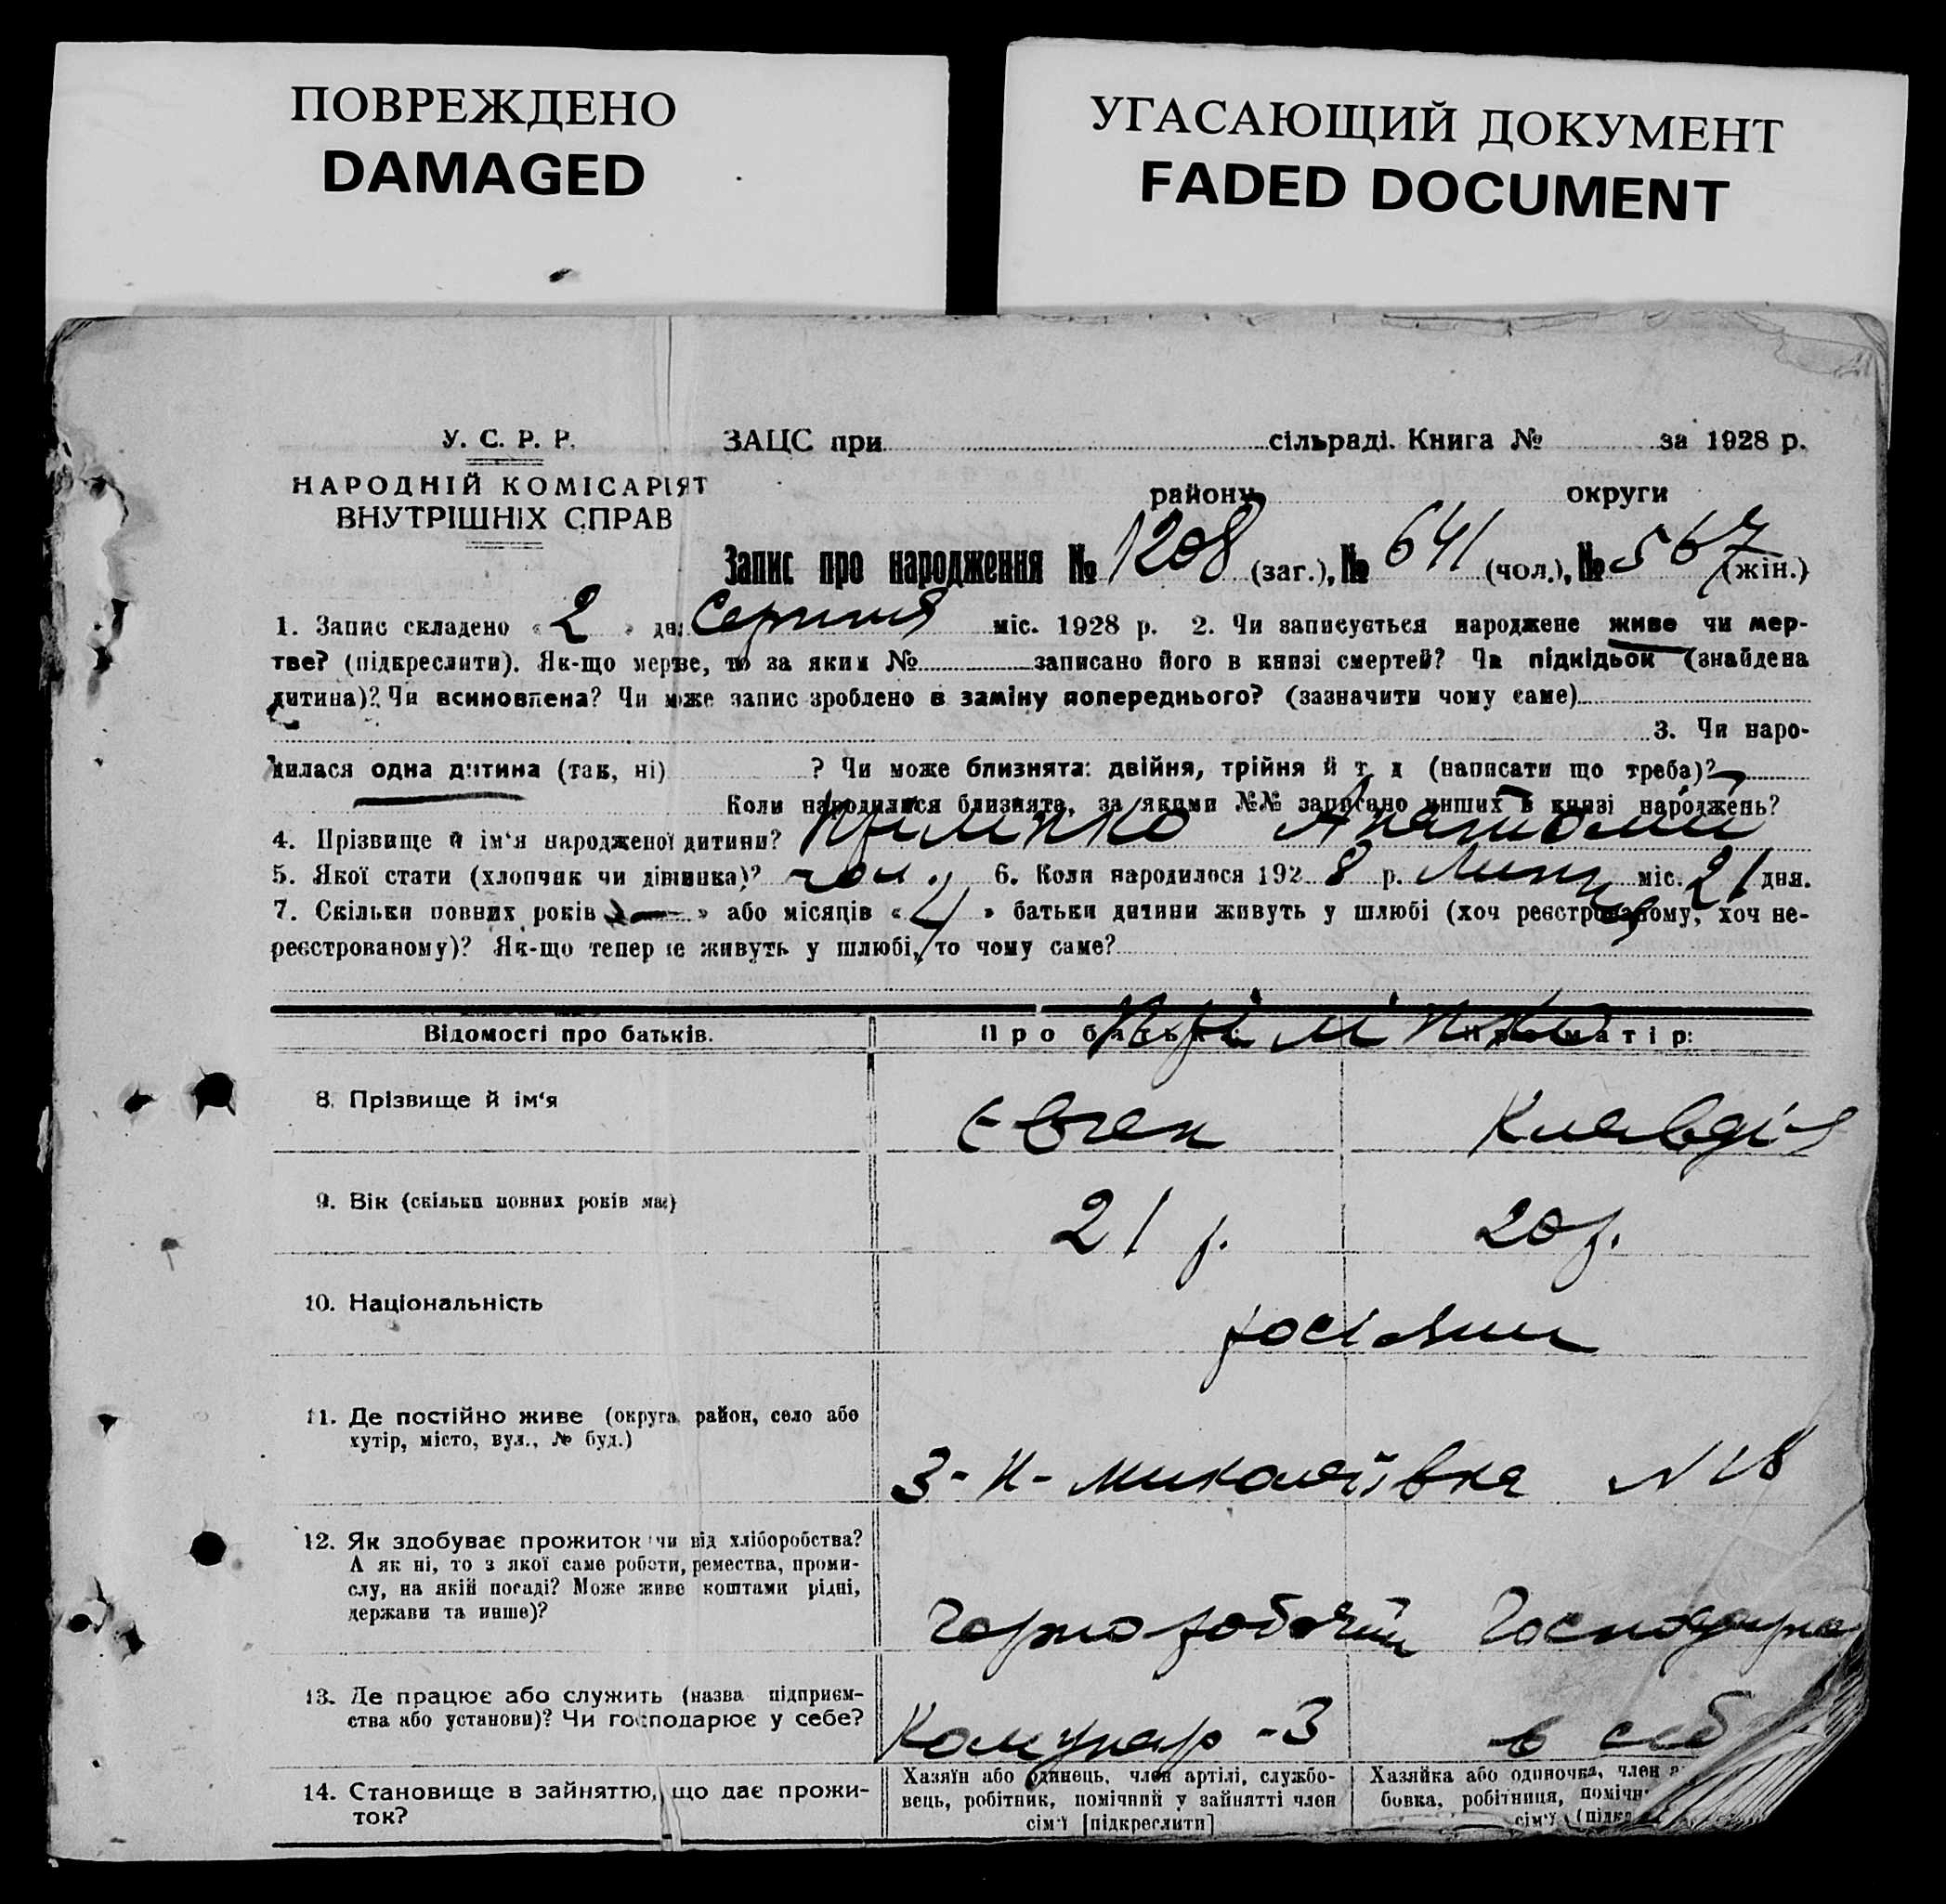 ПОВРЕЖДЕНО
DAMAGED
УГАСАЮЩИЙ ДОКУМЕНТ
FADED DOCUMENT
У. С. Р. Р.
НАРОДНІЙ КОМІСАРІЯТ
ВНУТРІШНІХ СПРАВ
ЗАЦС при сільраді. Книга № за 1928 р.
району округи
Запис про народження № 1208 (заг.), № 641 (чол.), № 567 (жін.)
1. Запис складено « 2 » дня Серпня міс. 1928 р. 2. Чи записується народжене живе чи мер-
тве? (підкреслити). Як-що мертве, то за яким № записано його в книзі смертей? Чи підкідьок (знайдена
дитина)? Чи всиновлена? Чи може запис зроблено в заміну попереднього? (зазначити чому саме)
3. Чи наро-
дилася одна дитина (так, ні) ? Чи може близнята: двійня, трійня й т. д (написати що треба)?
Коли народилися близнята, за якими №№ записано инших в книзі народжень?
4. Прізвище й ім'я народженої дитини? Анатолій
5. Якої стати (хлопчик чи дівчинка)? чол. 6. Коли народилося 192 8 р. Липня міс. 21 дня.
7. Скільки повних років « — » або місяців « 4 » батьки дитини живуть у шлюбі (хоч реєстрованому, хоч не-
реєстрованому)? Як-що тепер не живуть у шлюбі, то чому саме?
Відомості про батьків. Про батька: Про матір:
8. Прізвище й ім'я Євген Клавдія
9. Вік (скільки повних років має) 21 р. 20 р.
10. Національність росіяни
11. Де постійно живе (округа, район, село або
хутір, місто, вул., № буд.)
З-Н-Миколаївка N 18
12. Як здобуває прожиток чи від хліборобства?
А як ні, то з якої саме роботи, ремества, проми-
слу, на якій посаді? Може живе коштами рідні,
держави та инше)?
Чорноробочий Господарка
13. Де працює або служить (назва підприєм-
ства або установи)? Чи господарює у себе?
Комунар - З в себ
14. Становище в зайняттю, що дає прожи-
ток?
Хазяїн або одинець, член артілі, службо-
вець, робітник, помічний у зайнятті член
сім'ї [підкреслити]
Хазяйка або одиночка, член а
бовка, робітниця, помічн
сім'ї (підкр